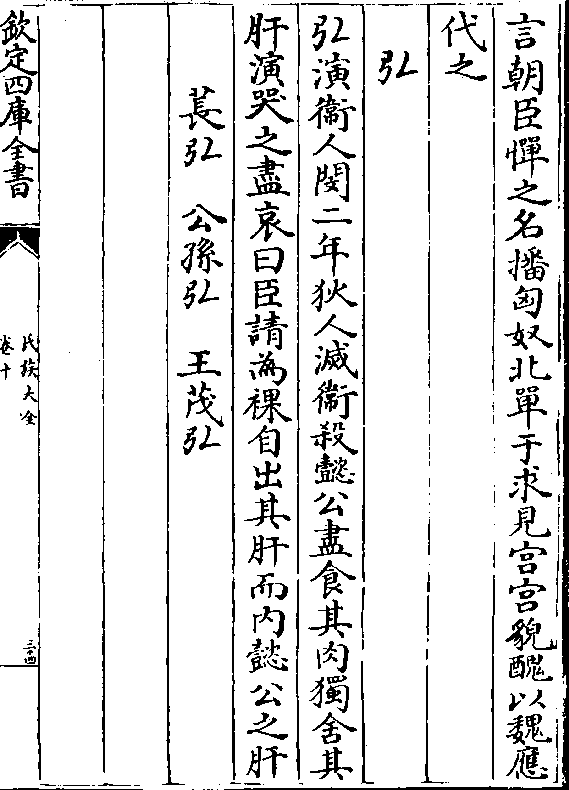 言朝臣憚之名播匈奴北單于求見宫宫貌醜以魏應
代之
弘
弘演衞人閔二年狄人滅衞殺懿公盡食其肉獨舍其
肝演哭之盡哀曰臣請為祼自出其肝而内懿公之肝
萇弘　公孫弘　王茂弘
欽定四庫全書
氏族大全
卷十
三十四